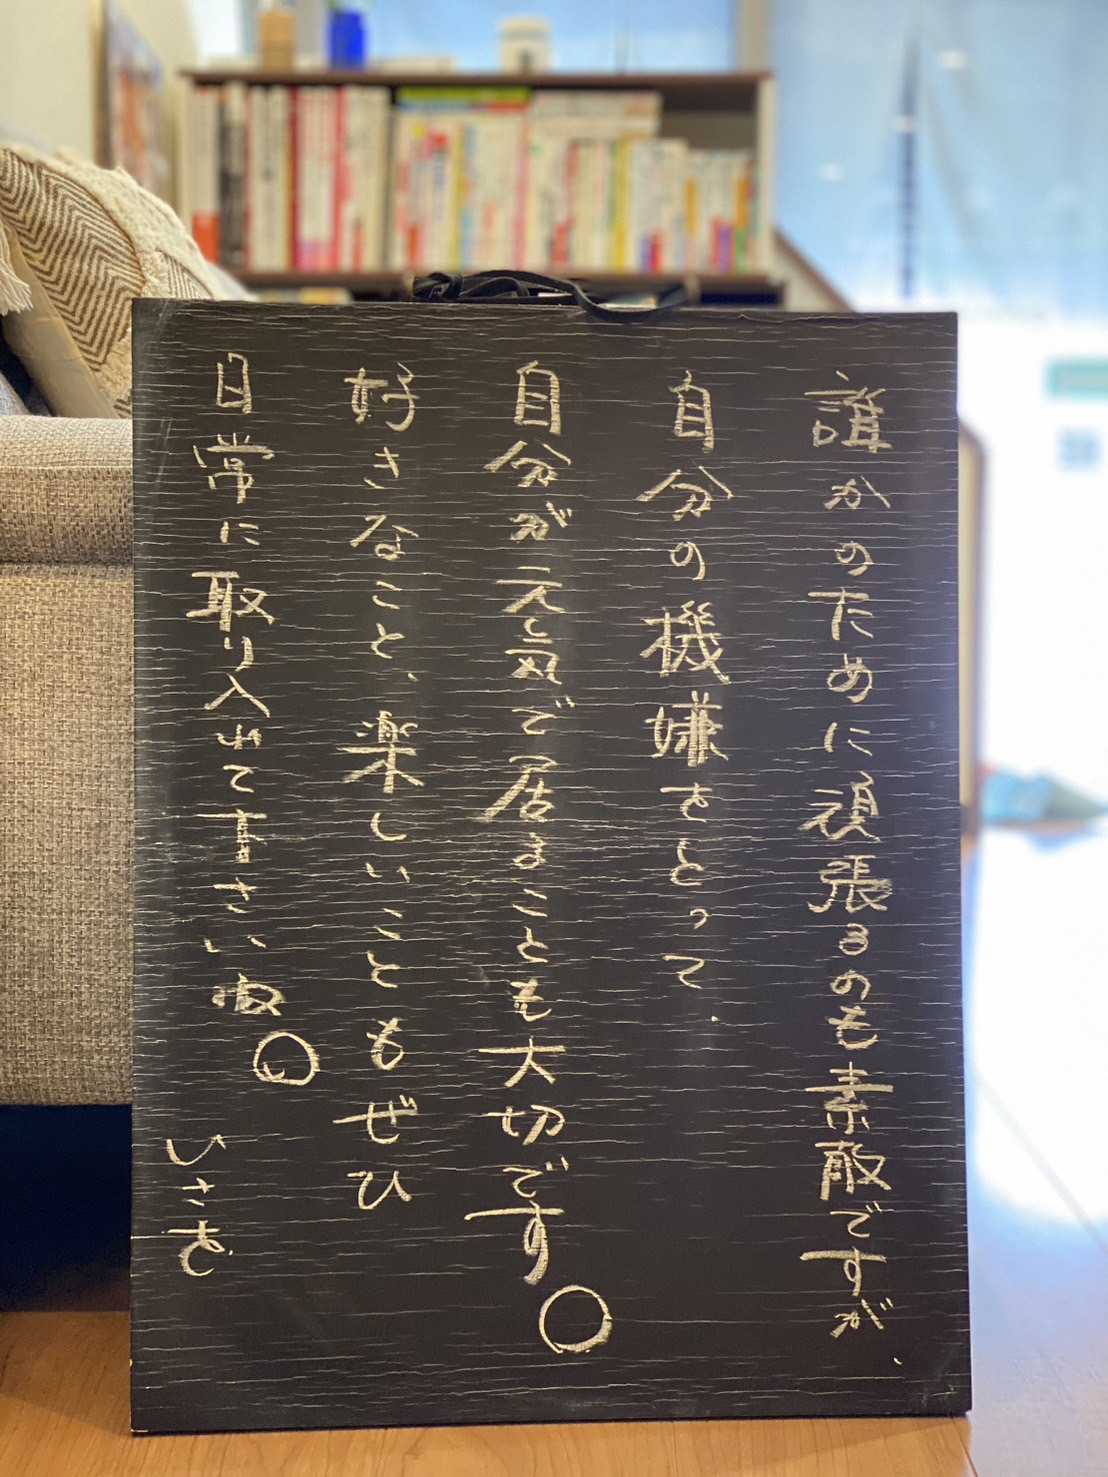 誰かのために頑張るのも素敵ですが、
自分の機嫌をとって、
自分が元気で居ることも大切です。
好きなこと、楽しいこともぜひ
日常に取り入れて下さいね。
いさを